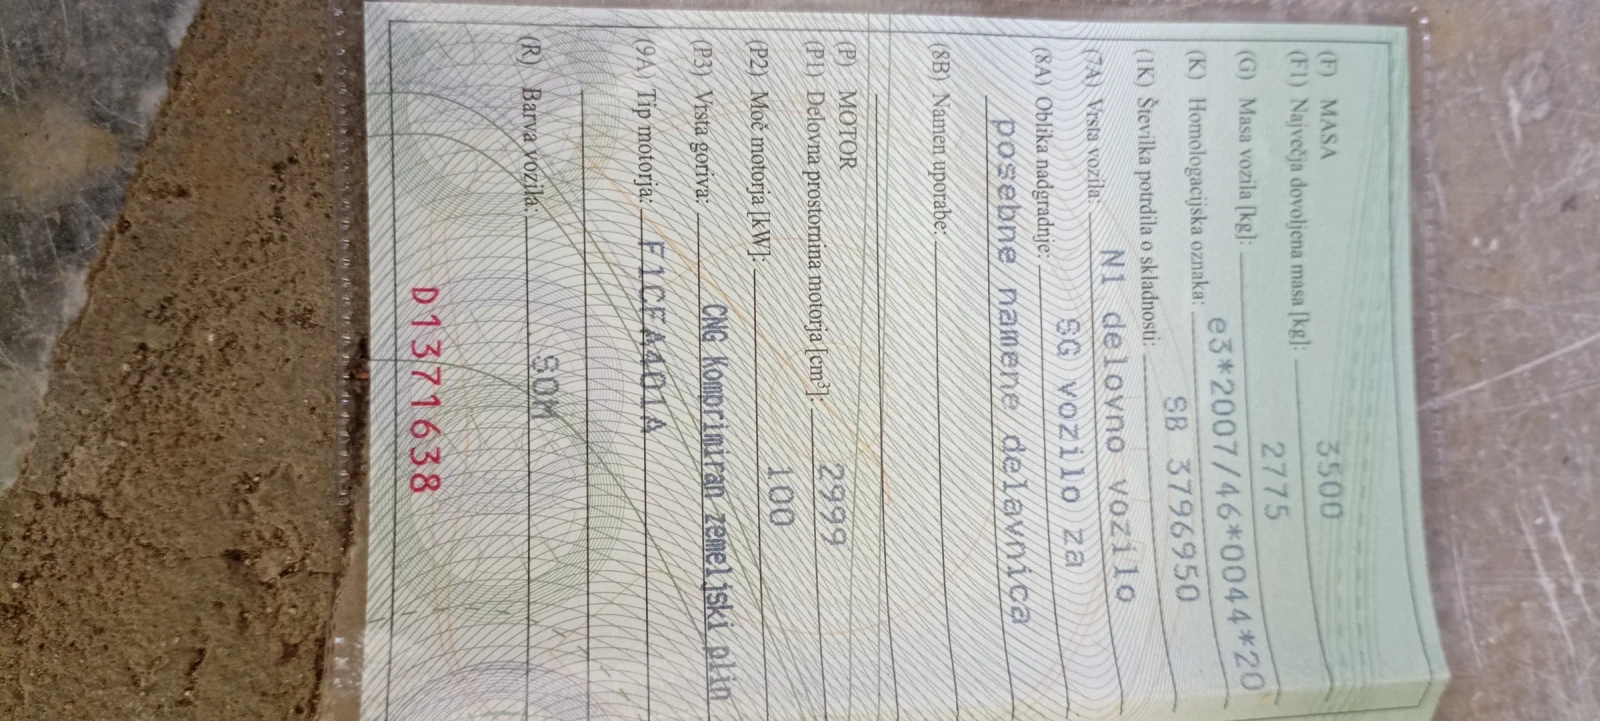 (F) MASA
(F1) Največja dovoljena masa [kg]: 3500
(G) Masa vozila [kg]: 2775
(K) Homologacijska oznaka: e3*2007/46*0044*20
(1K) Številka potrdila o skladnosti: SB 3796950
(7A) Vrsta vozila: N1 delovno vozilo
(8A) Oblika nadgradnje: SG vozilo za
posebne namene delavnica
(8B) Namen uporabe:
(P) MOTOR
(P1) Delovna prostornina motorja [cm³]: 2999
(P2) Moč motorja [kW]: 100
(P3) Vrsta goriva: CNG Komprimiran zemeljski plin
(9A) Tip motorja: F1CFA401A
(R) Barva vozila: SOM
D1371638